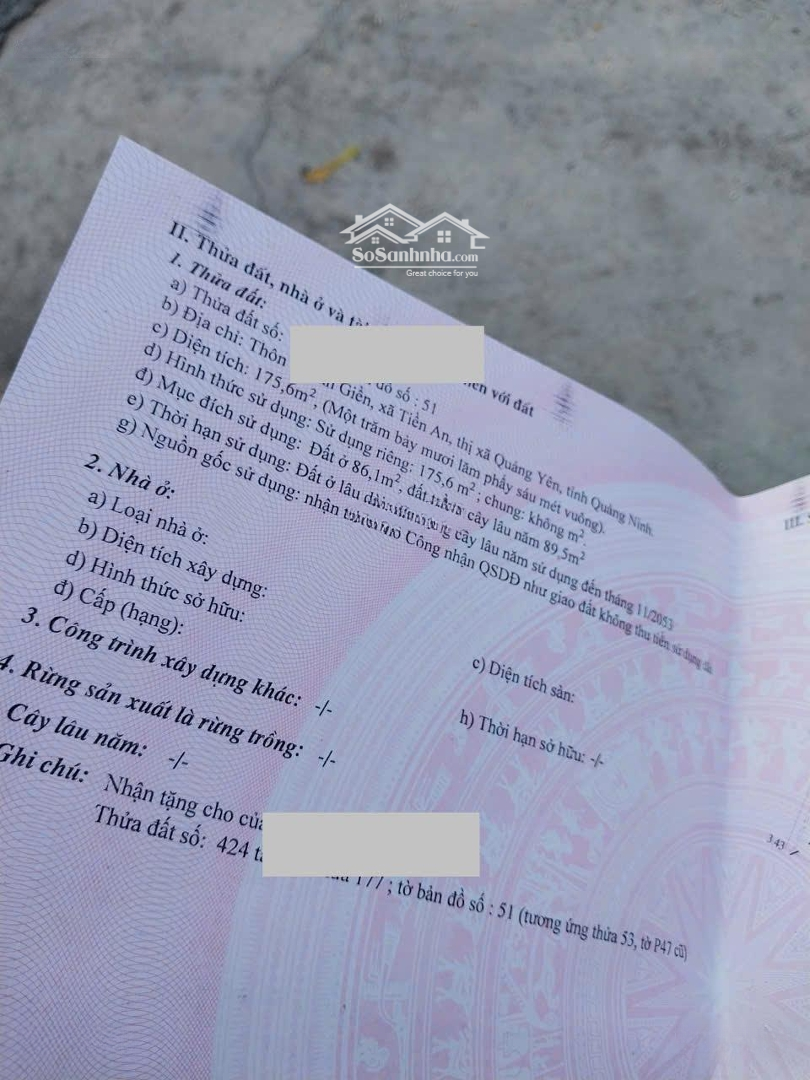 SoSanhnha.com
Great choice for you
II. Thửa đất, nhà ở và với đất
1. Thửa đất:
a) Thửa đất số: đồ số : 51
b) Địa chỉ: Thôn Giền, xã Tiền An, thị xã Quảng Yên, tỉnh Quảng Ninh.
c) Diện tích: 175,6m², (Một trăm bảy mươi lăm phẩy sáu mét vuông).
d) Hình thức sử dụng: Sử dụng riêng: 175,6 m² ; chung: không m².
đ) Mục đích sử dụng: Đất ở 86,1m², đất cây lâu năm 89,5m²
e) Thời hạn sử dụng: Đất ở lâu cây lâu năm sử dụng đến tháng 11/2053
g) Nguồn gốc sử dụng: nhận Công nhận QSDĐ như giao đất không thu tiền sử dụng
2. Nhà ở:
a) Loại nhà ở:
b) Diện tích xây dựng: c) Diện tích sàn:
d) Hình thức sở hữu:
đ) Cấp (hạng): h) Thời hạn sở hữu: -/-
3. Công trình xây dựng khác: -/-
4. Rừng sản xuất là rừng trồng: -/-
Cây lâu năm: -/-
Ghi chú: Nhận tặng cho của
Thửa đất số: 424 177 ; tờ bản đồ số : 51 (tương ứng thửa 53, tờ P47 cũ)
III.
343